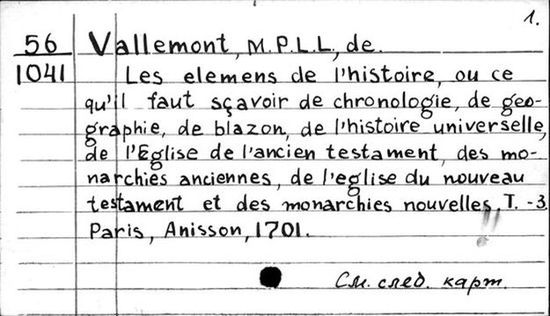 1.
56 Vallemont, M.P.L.L., de.
1041 Les elemens de l'histoire, ou ce
qu'il faut sçavoir de chronologie, de geo-
graphie, de blazon, de l'histoire universelle,
de l'Eglise de l'ancien testament, des mo-
narchies anciennes, de l'eglise du nouveau
testament et des monarchies nouvelles. T. -3
Paris, Anisson, 1701.
См. след. карт.